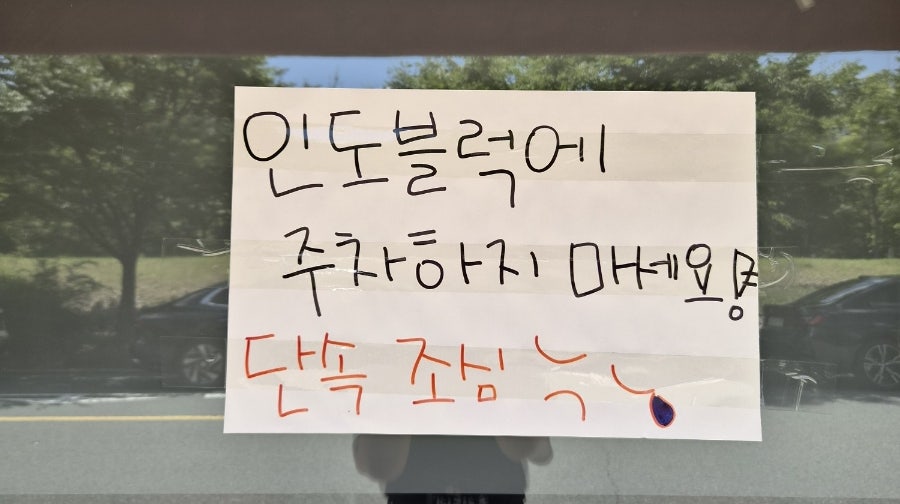 인도블럭에
주차하지 마세요!
단속 조심